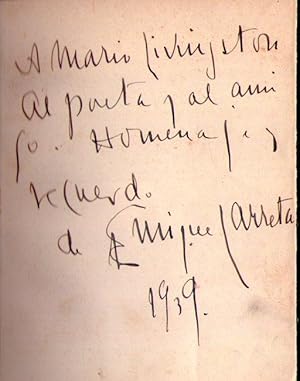 A Mario Livingston
Al poeta y al ami
go. Homenaje y
recuerdo
de Enrique Larreta
1939.